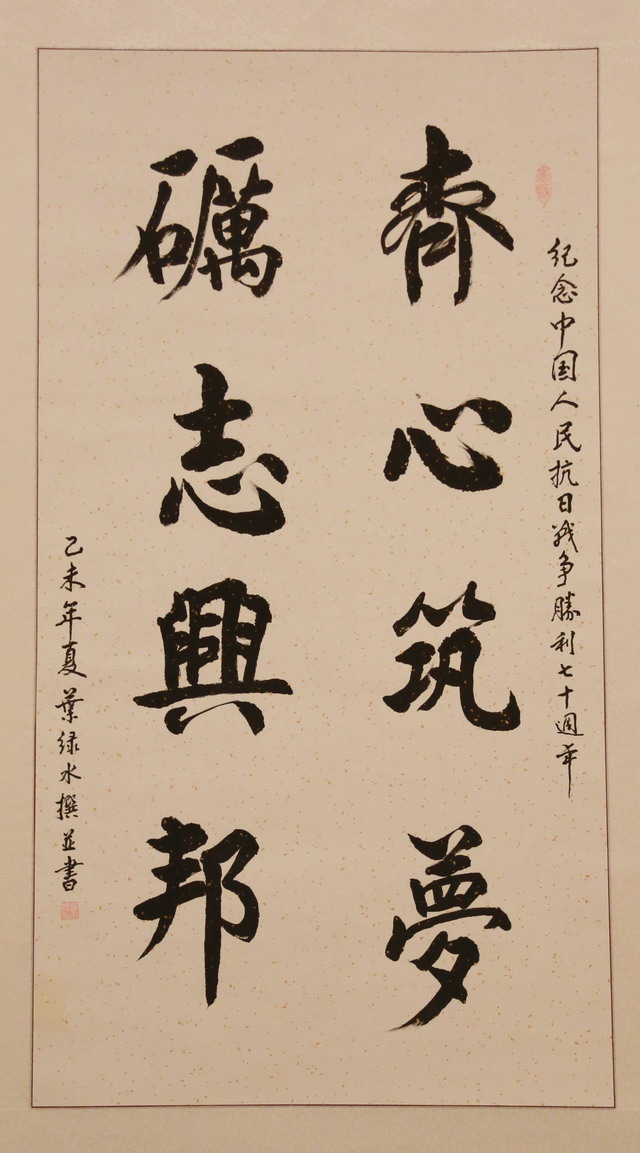 紀念中国人民抗日战争勝利七十週年
齊心筑夢
礪志興邦
乙未年夏葉绿水撰並書